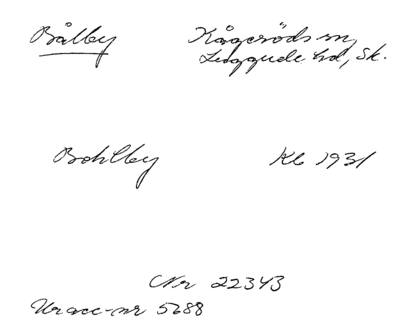 Bålby Kågeröds sn,
Luggude hd, Sk.
Bohlby Kb 1931
Nr 22343
Uracc-nr 5688